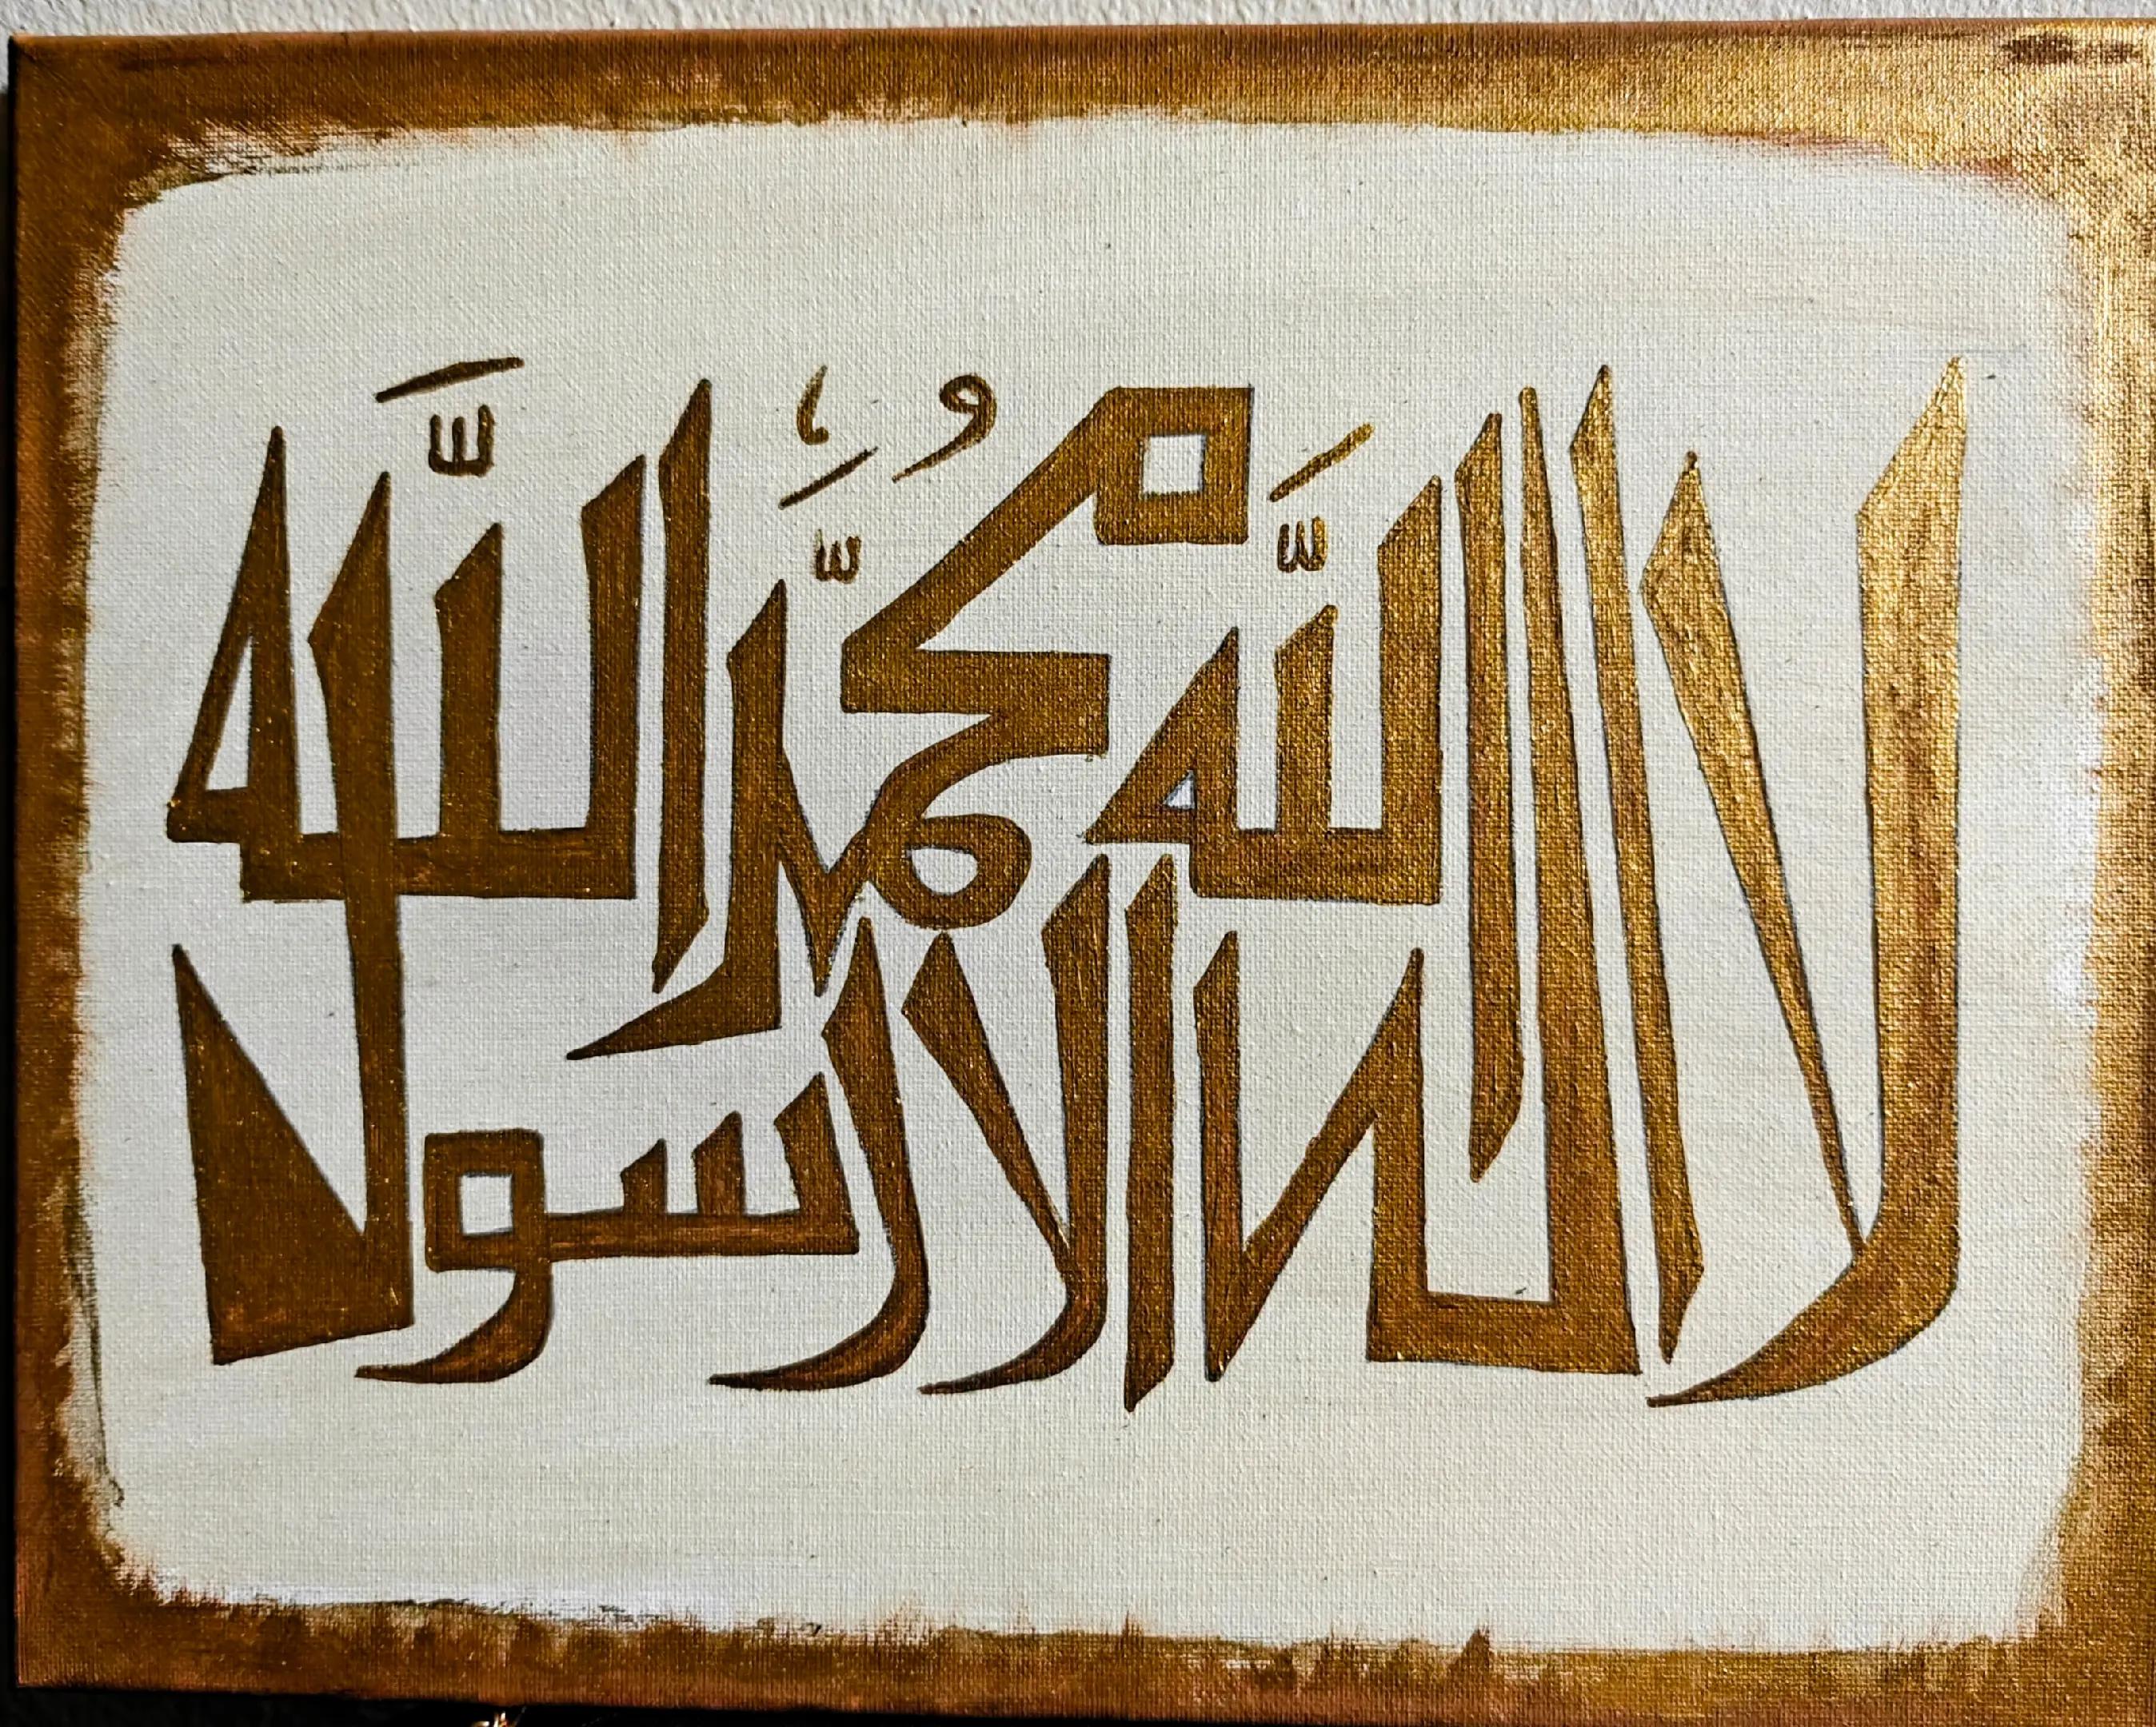 لا اله الا اللّه محمّد رسول اللّه